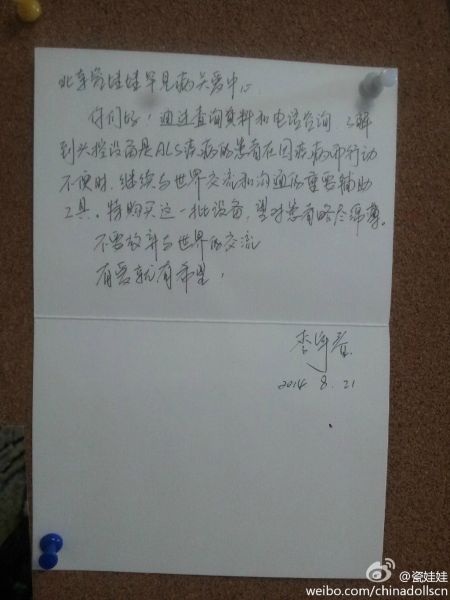 北京瓷娃娃罕见病关爱中心
你们好！通过查询资料和电话咨询，了解
到头控设备是ALS疾病的患者在因疾病而行动
不便时，继续与世界交流和沟通的重要辅助
工具。特购买这一批设备，望对患者略尽绵薄。
不要放弃与世界的交流
有爱就有希望，
2014 8.21
@瓷娃娃
weibo.com/chinadollscn